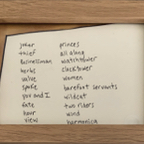 joker princes
thief all along
businessman watchtower
herbs clocktower
value women
spoke barefoot servants
you and I wildcat
fate two riders
hour wind
views harmonica